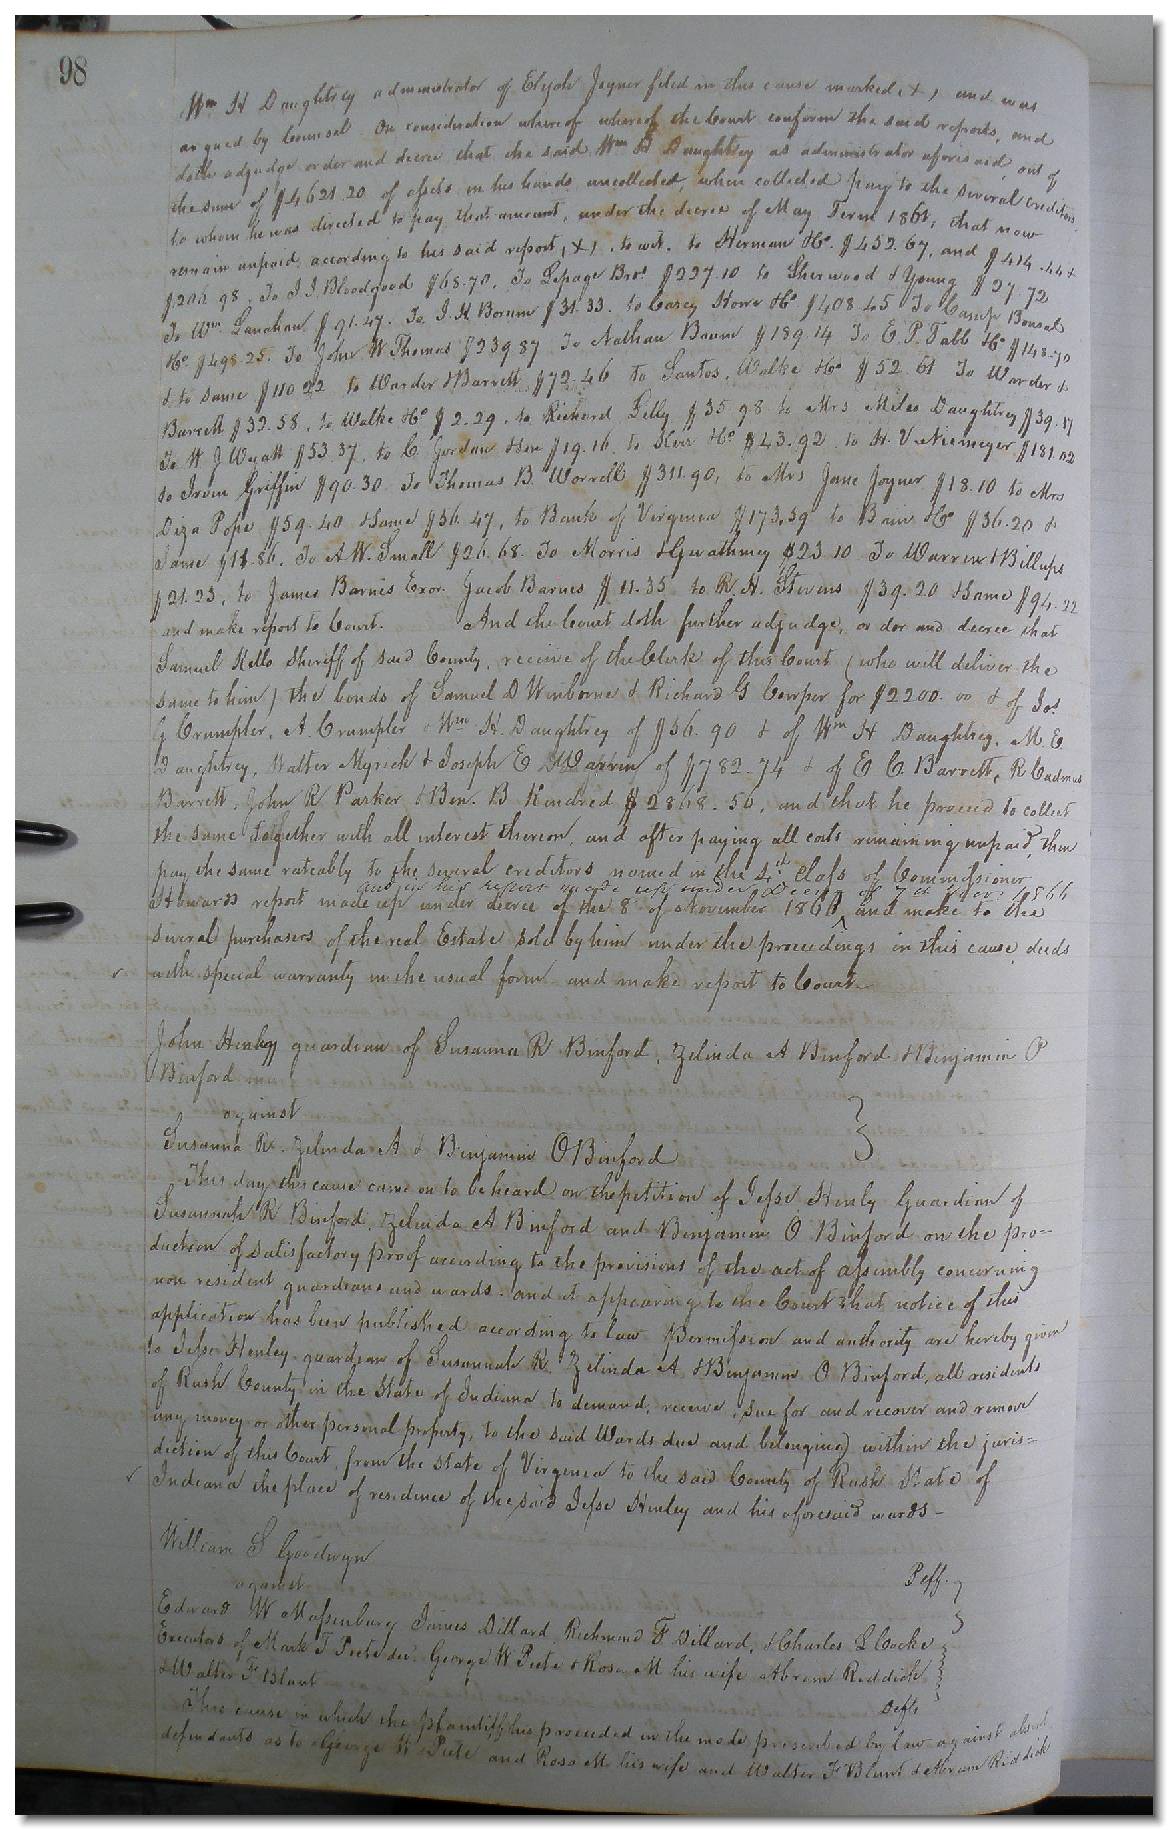 98
Wm H Daughtrey administrator of Elijah Joyner filed in this cause marked (X) and was
argued by Counsel On consideration whereof whereof the Court confirm the said reports, and
doth adjudge order and decree that the said Wm H Daughtrey as administrator aforesaid, out of
the sum of $4621.20 of assets in his hands uncollected, when collected pay to the several creditors
to whom he was directed to pay that amount, under the decree of May Term 1861, that now
remain unpaid according to his said report, (X), to wit, to Herman &Co $452.67, and $414.44 &
$206.98. To J.J. Bloodgood $68.70, To Lepage Bros $227.10 to Sherwood & Young $27.72
To Wm Lanahan $91.47. To J. K Borum $31.33. to Carey Howe &Co $408.45 To Camp Bonsal
&Co $498.25. To John W Thomas $239.87 To Nathan Baum $189.14 To E. P. Tabb &Co $148.70
& to same $110.22 to Warder & Barrett $72.46 to Santos, Walke &Co $52.61 To Warder &
Barrett $32.58, to Walke &Co $2.29, to Richard Gelly $35.98 to Mrs Miles Daughtrey $39.17
To W J Wyatt $53.37, to C Gordon &Son $19.16, to Kerr &Co $43.92, to H. V. Niemeyer $181.02
to Irvin Griffin $90.30 To Thomas B. Worrell $311.90, to Mrs Jane Joyner $18.10 to Mrs
Diza Pope $59.40 &Same $36.47, to Bank of Virginia $173.39 to Bain &Co $36.20 &
Same $11.86. To A. W. Small $26.68. To Morris &Gwathmey $23.10 To Warren & Billups
$21.23, to James Barnes Exor. Jacob Barnes $11.35 to R. H. Stevens $39.20 &Same $94.22
and make report to Court. And the Court doth further adjudge, or der and decree that
Samuel Kello Sheriff of said County, receive of the Clerk of this Court (who will deliver the
same to him) the bonds of Samuel D Winborne & Richard G Cowper for $2200.00 & of Jos
G Crumpler, A Crumpler & Wm H Daughtrey of $36.90 & of Wm H Daughtrey, M. E
Daughtrey, Walter Myrick & Joseph E Warren of $782.74 & of E C Barrett, R Cadmus
Barrett, John R Parker & Ben. B Kindred $2868.50, and that he proceed to collect
the same together with all interest thereon, and after paying all costs remaining unpaid, then
pay the same rateably to the several creditors named in the 4th class of Commissioner
and in his report made up under Decree of 7th Nov. 1866
Howards report made up under decree of the 8th of November 1860 ^ and make to the
several purchasers of the real Estate sold by him under the proceedings in this cause, deeds
with special warranty in the usual form and make report to Court.
John Henley guardian of Susanna R Binford, Zelinda A Binford & Benjamin O
Binford
against
Susanna R. Zelinda A & Benjamin O Binford
This day this cause came on to be heard on the petition of Jesse Henly Guardian of
Susannah R Binford, Zelinda A Binford and Benjamin O Binford on the pro-
duction of satisfactory proof according to the provisions of the act of assembly concerning
non resident guardians and wards. and it appearing to the Court that notice of this
application has been published according to law Permission and authority are hereby given
to Jesse Henley guardian of Susannah R. Zelinda A &Benjamin O Binford, all residents
of Rush County in the State of Indiana to demand, receive, sue for and recover and remove
any money or other personal property, to the said Wards due and belonging) within the juris-
diction of this Court, from the state of Virginia to the said County of Rush State of
Indiana the place of residence of the said Jesse Henley and his aforesaid wards-
William S Goodwyn
Peff.
against
Edward W Massenburg James Dillard, Richmond F Dillard, &Charles L Cocke
Executors of Mark T Peete dec. George W Peete & Rosa M his wife Abram Reddick
&Walter F Blunt
Defts
This cause in which the plaintiff has proceeded in the mode prescribed by law against absent
defendants as to George W Peete and Rosa M. his wife and Walter F Blunt & Abram Riddick